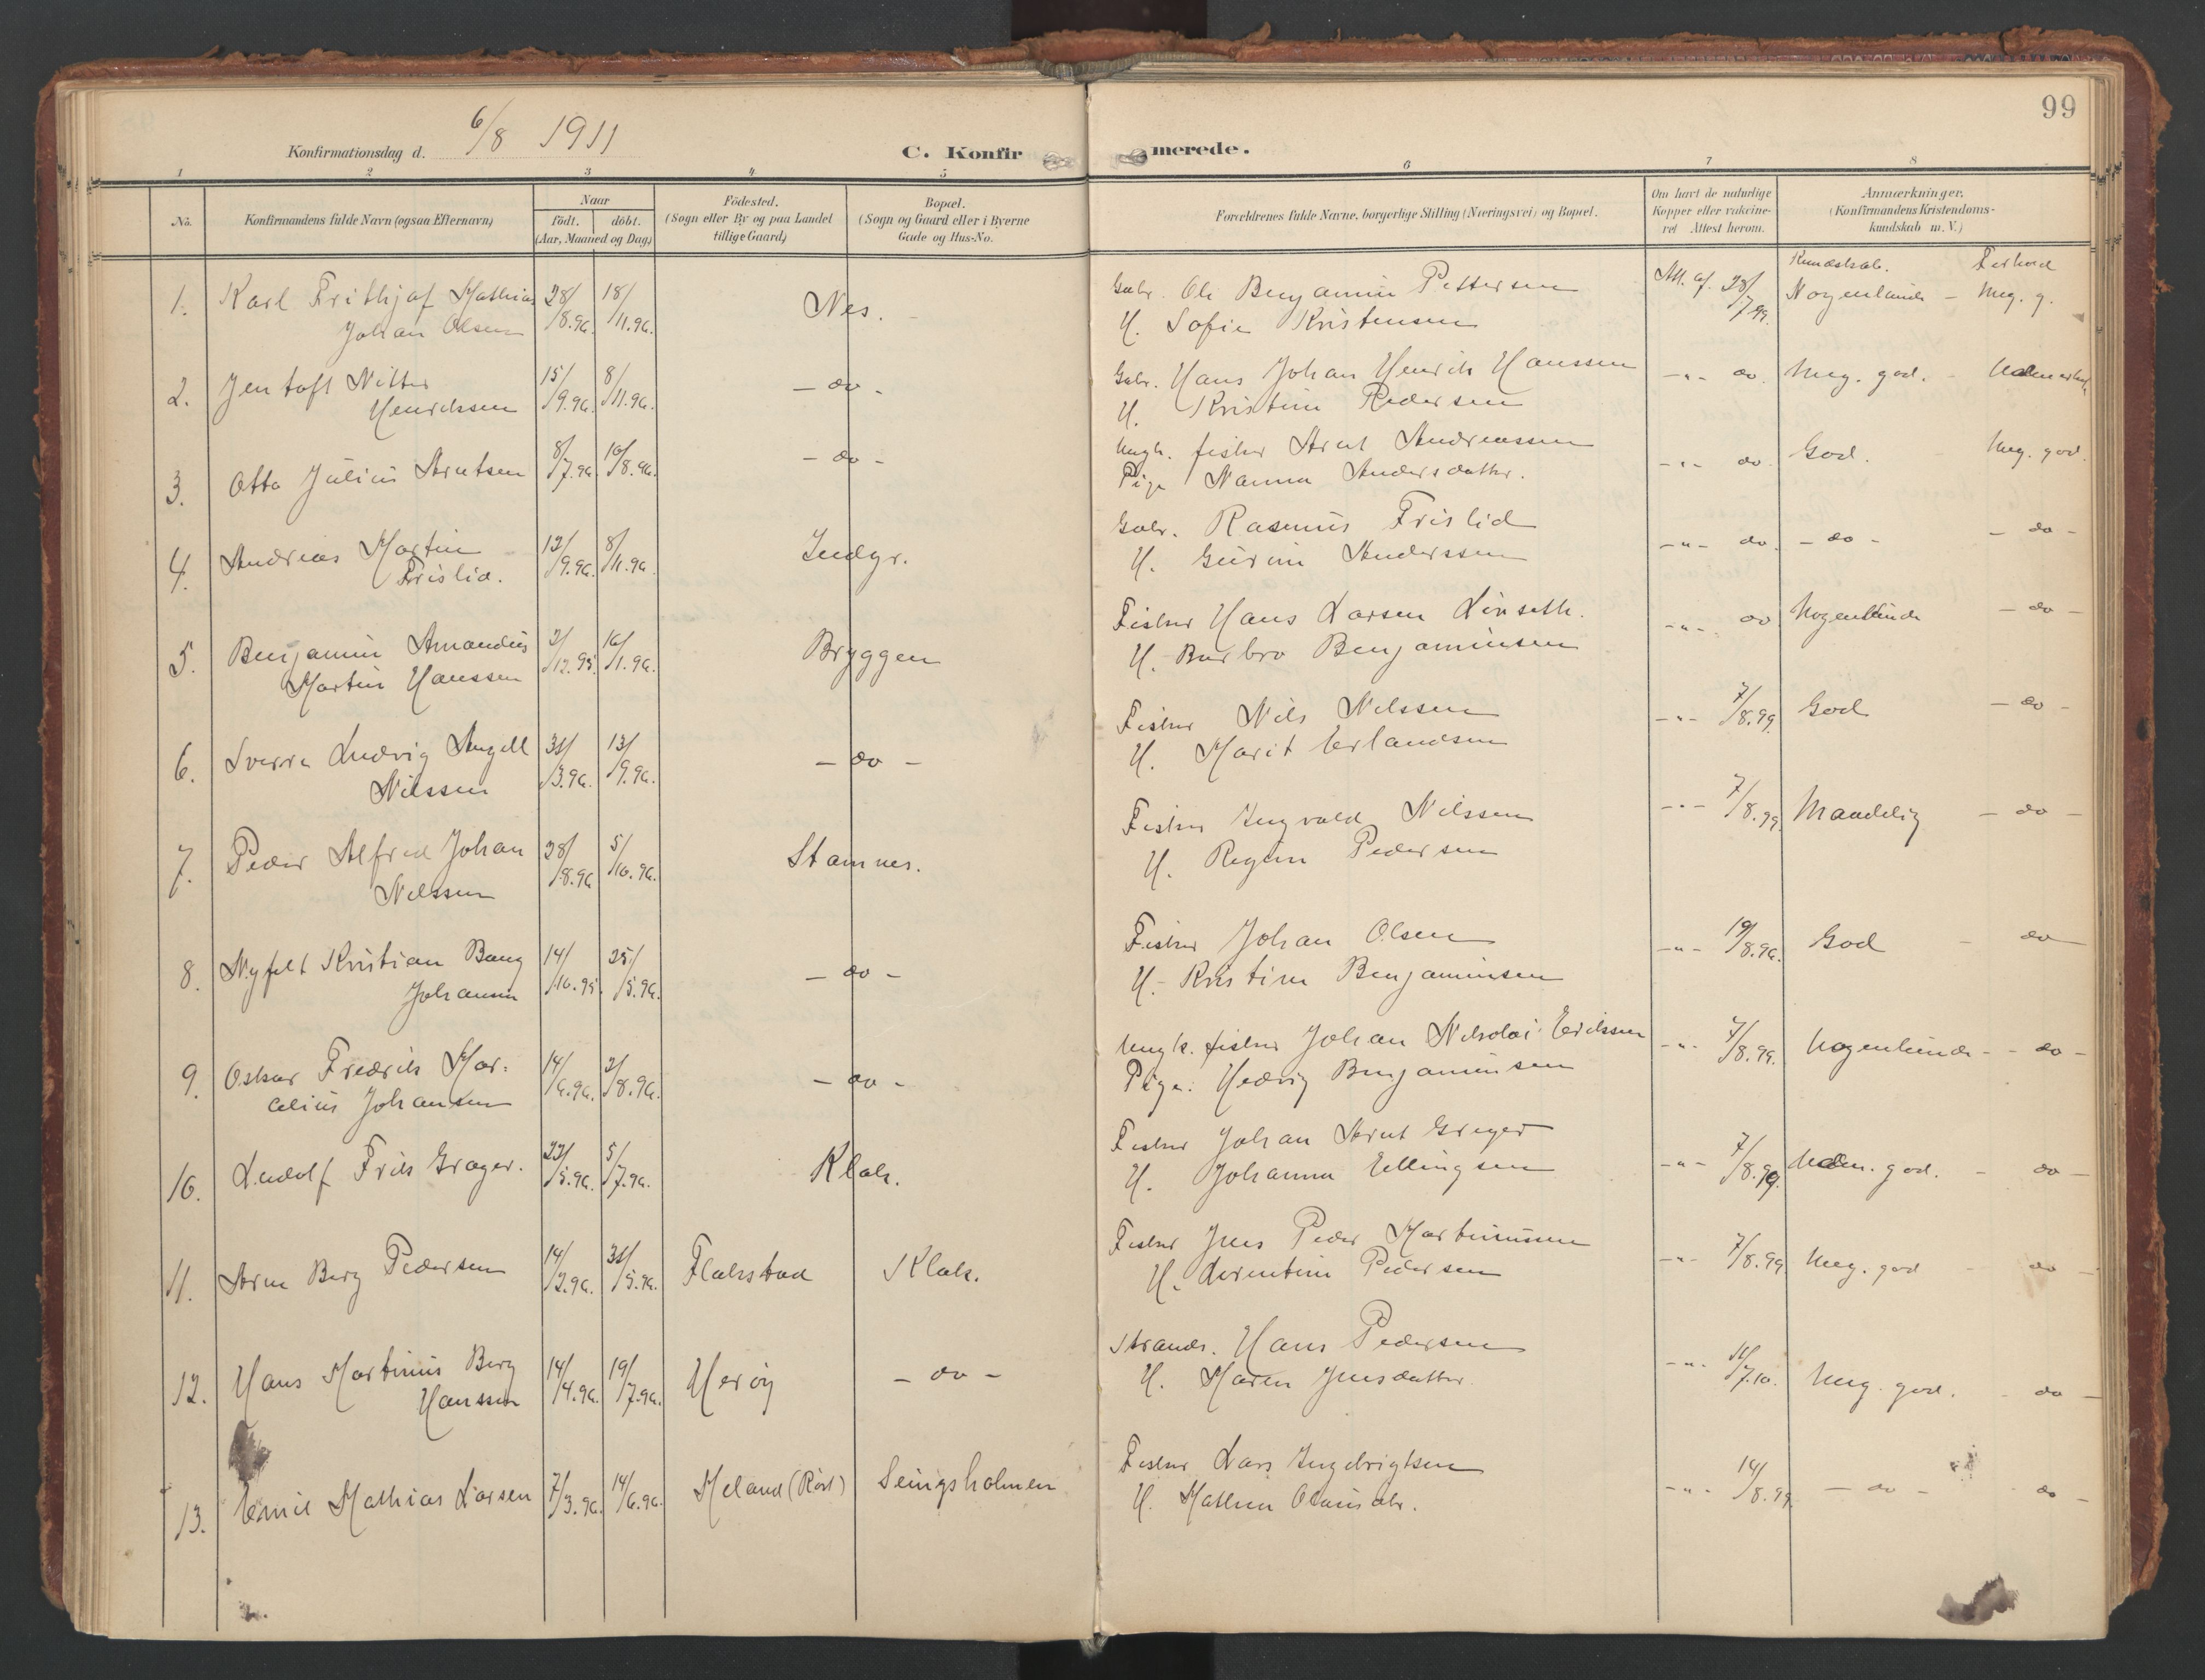 99
Konfirmationsdag d. 6/8 1911
C. Konfirmerede.
1 2 3 4 5 6 7 8
No. Konfirmandens fulde Navn (ogsaa Efternavn) Naar födt. döbt. (Aar, Maaned og Dag) Födested. (Sogn eller By og paa Landet tillige Gaard) Bopæl. (Sogn og Gaard eller i Byerne Gade og Hus-No. Forældrenes fulde Navne, borgerlige Stilling (Næringsvei) og Bopæl. Om havt de naturlige Kopper eller vakcineret Attest herom. Anmærkninger. (Konfirmandens Kristendomskundskab m. V.)
Kundskab. Forhold
1. Karl Frithjof Mathias 28/8.96. 18/11.96. Nes. Gbr. Ole Benjamin Pettersen Att. af 28/7 99. Nogenlunde - Meg. g.
Johan Olsen H. Sofie Kristensen
2. Jentoft Nitter 15/9.96. 8/11.96. - do - Gbr. Hans Johan Henrik Hanssen -"- do. Meg. god. -
Henrikssen H. Kristine Pedersen
3. Otto Julius Arntsen 8/7.96. 16/8.96. - do - Ungk. fisker Arnt Andreassen -"- do. God. Meg. god.
Pige Nanna Andersdatter.
4. Andreas Martin 12/9.96. 8/11.96. Indgr. Gbr. Rasmus Frislid -"- do. - do - - do -
Frislid. H. Gurine Anderssen
5. Benjamin Amandus 2/12.95. 16/1.96. Bryggen Fisker Hans Larsen Linseth. -"- do Nogenlunde - do -
Martin Hanssen H. Barbro Benjaminsen
6. Sverre Ludvig Angell 31/3.96. 13/9.96. - do - Fisker Nils Nilssen -"- 7/8.99. God - do -
Nilssen H. Marit Erlandsen
7. Peder Alfred Johan 28/8.96 5/10.96. Stamnes. Fisker Ingvald Nilssen -"- 7/8.99. Maadelig - do -
Nilssen H. Regine Pedersen
8. Nyfelt Kristian Bang 14/10.95. 25/5.96. - do - Fisker Johan Olsen -"- 19/8.96. God - do -
Johansen H. Kristine Benjaminsen
9. Oskar Fredrik Mar- 14/6.96. 2/8.96. - do - Ungk. fisker Johan Nikolai Erikssen -"- 7/8.99. Nogenlunde - - do -
celius Johansen Pige. Hedvig Benjaminsen
10. Ludolf Friis Grøger. 23/5.96. 5/7.96. Klak. Fisker Johan Arnt Greger -"- 7/8.99. god. - do -
H. Johanna Ellingsen
11. Arne Berg Pedersen 14/2.96. 31/5.96. Flakstad Klak. Fisker Jens Peder Martinussen -"- 7/8.99. Meg. god - do -
H. Lorentine Pedersen
12. Hans Martinus Berg 14/4.96. 19/7.96. Herøy - do - Strands. Hans Pedersen -"- 11/7.10. Meg. god. - do -
Hanssen H. Maren Jensdatter
13. Emil Mathias Larsen 7/3.96. 14/6.96. Meland (Röst) Seingsholmen Fisker Lars Ingebrigtsen -"- 14/8.99. - do - - do -
H. Mathea Olausdtr.